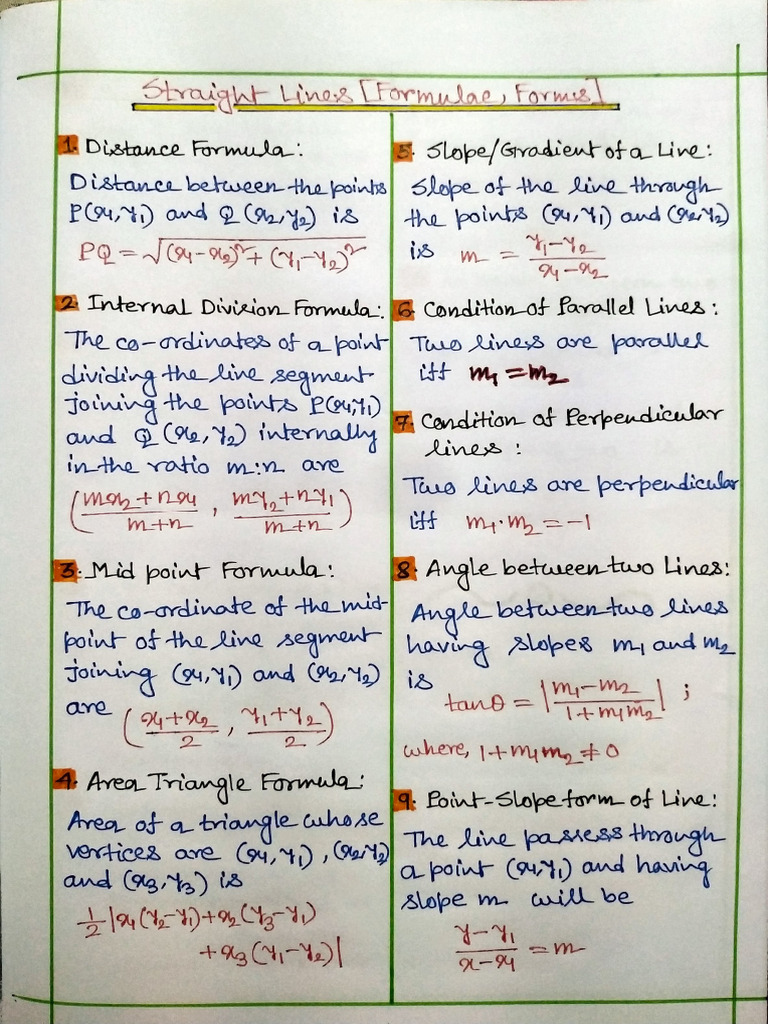 Straight Lines [Formulae, Forms]
1. Distance Formula:
Distance between the points
P(x₁,y₁) and Q(x₂,y₂) is
PQ = √(x₁-x₂)²+(y₁-y₂)²
2. Internal Division Formula:
The co-ordinates of a point
dividing the line segment
joining the points P(x₁,y₁)
and Q(x₂,y₂) internally
in the ratio m:n are
((mx₂+nx₁)/(m+n), (my₂+ny₁)/(m+n))
3. Mid point Formula:
The co-ordinate of the mid-
point of the line segment
joining (x₁,y₁) and (x₂,y₂)
are ((x₁+x₂)/2, (y₁+y₂)/2)
4. Area Triangle Formula:
Area of a triangle whose
vertices are (x₁,y₁), (x₂,y₂)
and (x₃,y₃) is
1/2|x₁(y₂-y₁)+x₂(y₃-y₁)
+x₃(y₁-y₂)|
5. Slope/Gradient of a Line:
Slope of the line through
the points (x₁,y₁) and (x₂,y₂)
is m = (y₁-y₂)/(x₁-x₂)
6. Condition of Parallel Lines:
Two lines are parallel
iff m₁=m₂
7. Condition of Perpendicular
lines:
Two lines are perpendicular
iff m₁.m₂=-1
8. Angle between two Lines:
Angle between two lines
having slopes m₁ and m₂
is tanθ = |(m₁-m₂)/(1+m₁m₂)| ;
where, 1+m₁m₂≠0
9. Point-Slope form of Line:
The line passess through
a point (x₁,y₁) and having
slope m will be
(y-y₁)/(x-x₁) = m